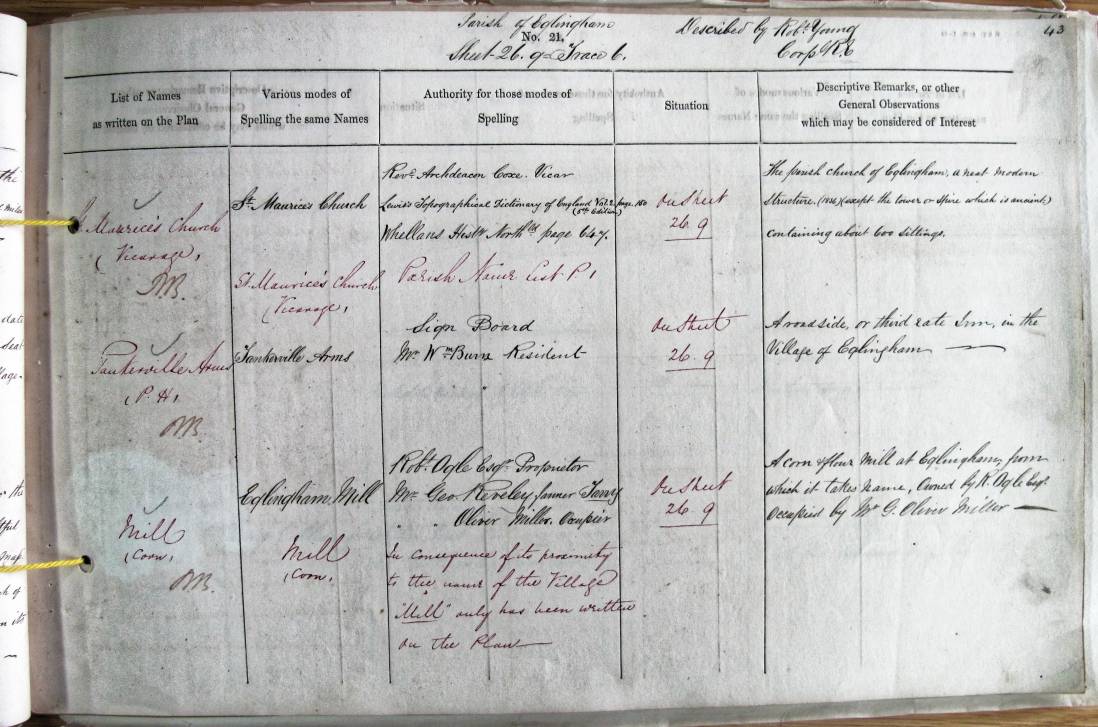 Parish of Eglingham
No. 21.
Sheet 26. 9 Trace 6.
Described by Robt. Young
Corpl R.E
43
List of Names
as written on the Plan
Various modes of
Spelling the same Names
Authority for those modes of
Spelling
Situation
Descriptive Remarks, or other
General Observations
which may be considered of Interest
St. Maurice's Church
(Vicarage)
St. Maurice Church
St. Maurice's Church
(Vicarage)
Revd. Archdeacon Coxe. Vicar
Lewis's Topographical Dictionary of England Vol 2. page. 150
(5th Edition)
Whellans Histy. Northld. page 647.
Parish Name List P. 1
On Sheet
26. 9
The parish church of Eglingham, a neat modern
structure. (1836) (except the tower or spire which is ancient)
containing about 600 sittings.
Tankerville Arms
(P. H)
Tankerville Arms
Sign Board
Mr. Wm Burn Resident
On Sheet
26. 9
A roadside, or third rate Inn, in the
Village of Eglingham
Mill
(Corn)
Eglingham Mill
Mill
(Corn)
Robt. Ogle Esqr. Proprietor
Mr. Geo. Reveley, farmer
" " Oliver Miller. Occupier
In consequence of its proximity
to the name of the Village
"Mill" only has been written
on the Plan
On Sheet
26 9
A corn & flour Mill at Eglingham, from
which it takes name, Owned by R. Ogle Esqr.
Occupied by Mr G. Oliver Miller